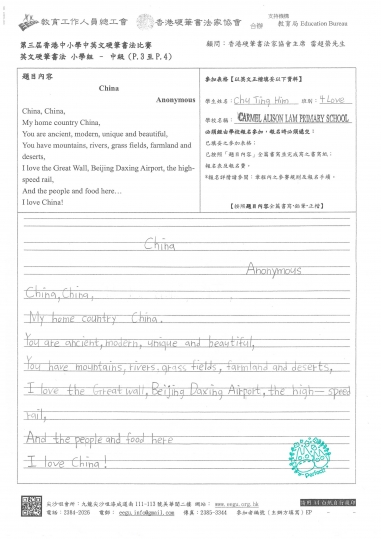 教育工作人員總工會
香港硬筆書法家協會
合辦
支持機構
教育局 Education Bureau
第三屆香港中小學中英文硬筆書法比賽
顧問：香港硬筆書法家協會主席
英文硬筆書法 小學組 － 中級 (P.3 至 P.4)
題目內容
China
Anonymous
China, China,
My home country China,
You are ancient, modern, unique and beautiful,
You have mountains, rivers, grass fields, farmland and
deserts,
I love the Great Wall, Beijing Daxing Airport, the high-
speed rail,
And the people and food here…
I love China!
參加表格【以英文正楷填妥以下資料】
學生姓名：Chu Ting Him 班別：4 Love
學校名稱：CARMEL ALISON LAM PRIMARY SCHOOL
必須經由學校報名參加，報名時必須遞交：
已填妥之參加表格；
已按照「題目內容」全篇書寫並完成英文書寫紙；
報名表及報名費。
【按照題目內容全篇書寫-鉛筆-正楷】
China
Anonymous
China, China,
My home country China.
You are ancient, modern, unique and beautiful,
You have mountains, rivers. grass fields, farmland and deserts,
I love the Great wall, Beijing Daxing Airport, the high- speed
rail,
And the people and food here
I love China!
尖沙咀會所：九龍尖沙咀漆咸道南 111-113 號美華閣二樓 網址： www.eegu.org.hk
電話：2384-2026 電郵： eegu.info@gmail.com 傳真：2385-3344 參加者編號 (主辦方填寫) EP -